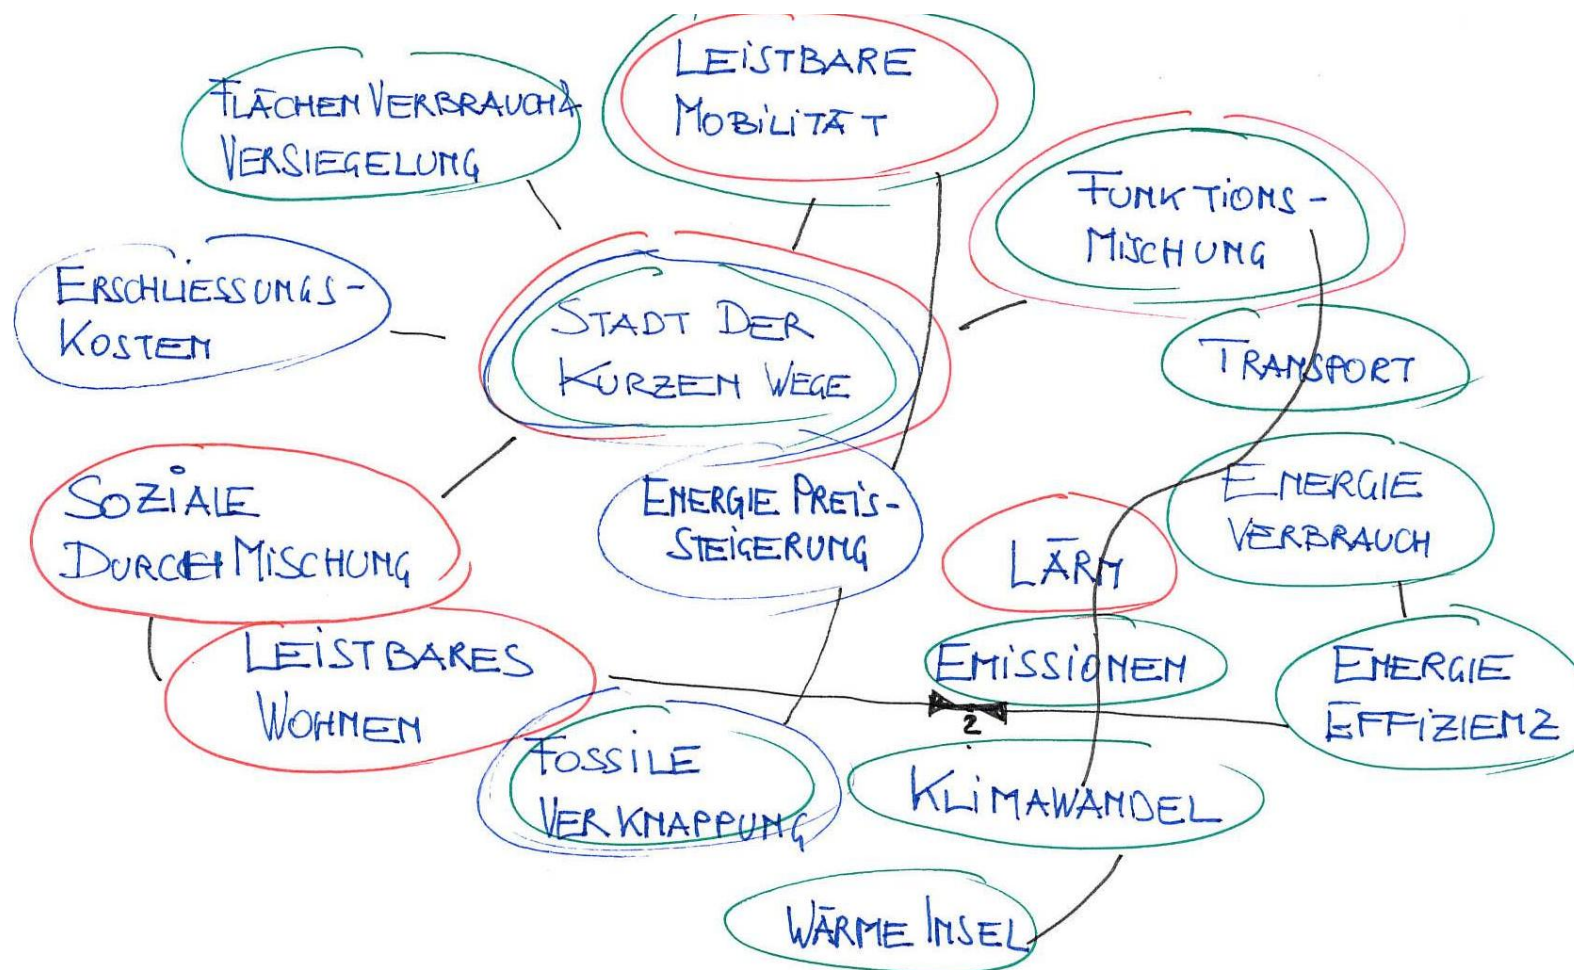 LEISTBARE
MOBILITÄT
FLÄCHEN VERBRAUCH &
VERSIEGELUNG
FUNKTIONS-
MISCHUNG
ERSCHLIESSUNGS-
KOSTEN
STADT DER
KURZEN WEGE
TRANSPORT
SOZIALE
DURCHMISCHUNG
ENERGIE PREIS-
STEIGERUNG
ENERGIE
VERBRAUCH
LÄRM
LEISTBARES
WOHNEN
EMISSIONEN
ENERGIE
EFFIZIENZ
2
FOSSILE
VERKNAPPUNG
KLIMAWANDEL
WÄRME INSEL